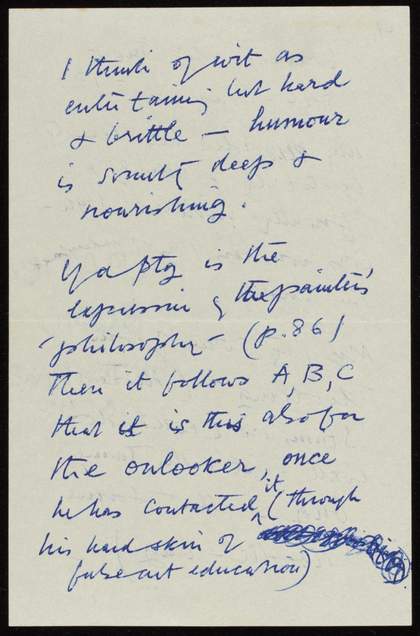 I think of wit as
entertaining but hard
& brittle — humour
is something deep &
nourishing.
If a ptg is the
expression of the painter's
"philosophy" (p. 86)
then it follows A, B, C
that it is this also for
the onlooker, once
he has contacted it (through
his hard skin of
false art education)